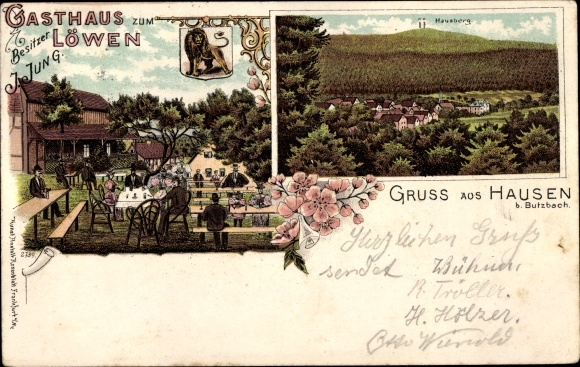 GASTHAUS ZUM
LÖWEN
Besitzer
J. JUNG.
Hausberg.
GRUSS AUS HAUSEN
b. Butzbach.
2780
Herzlichen Gruß
sendet Bühm.
R. Tröller.
H. Hölzer.
Otto